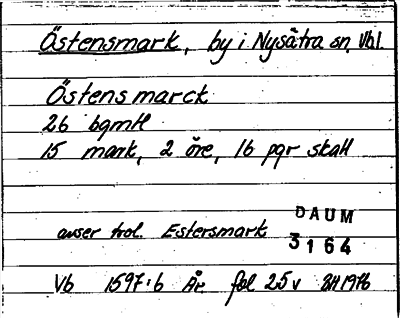 Östensmark, by i Nysätra sn, Vbl.
Östensmarck
26 bgmtl
15 mark, 2 öre, 16 pgr skatt
avser trol. Estersmark
DAUM
3164
Vb 1597:6 År. fol 25v 1976